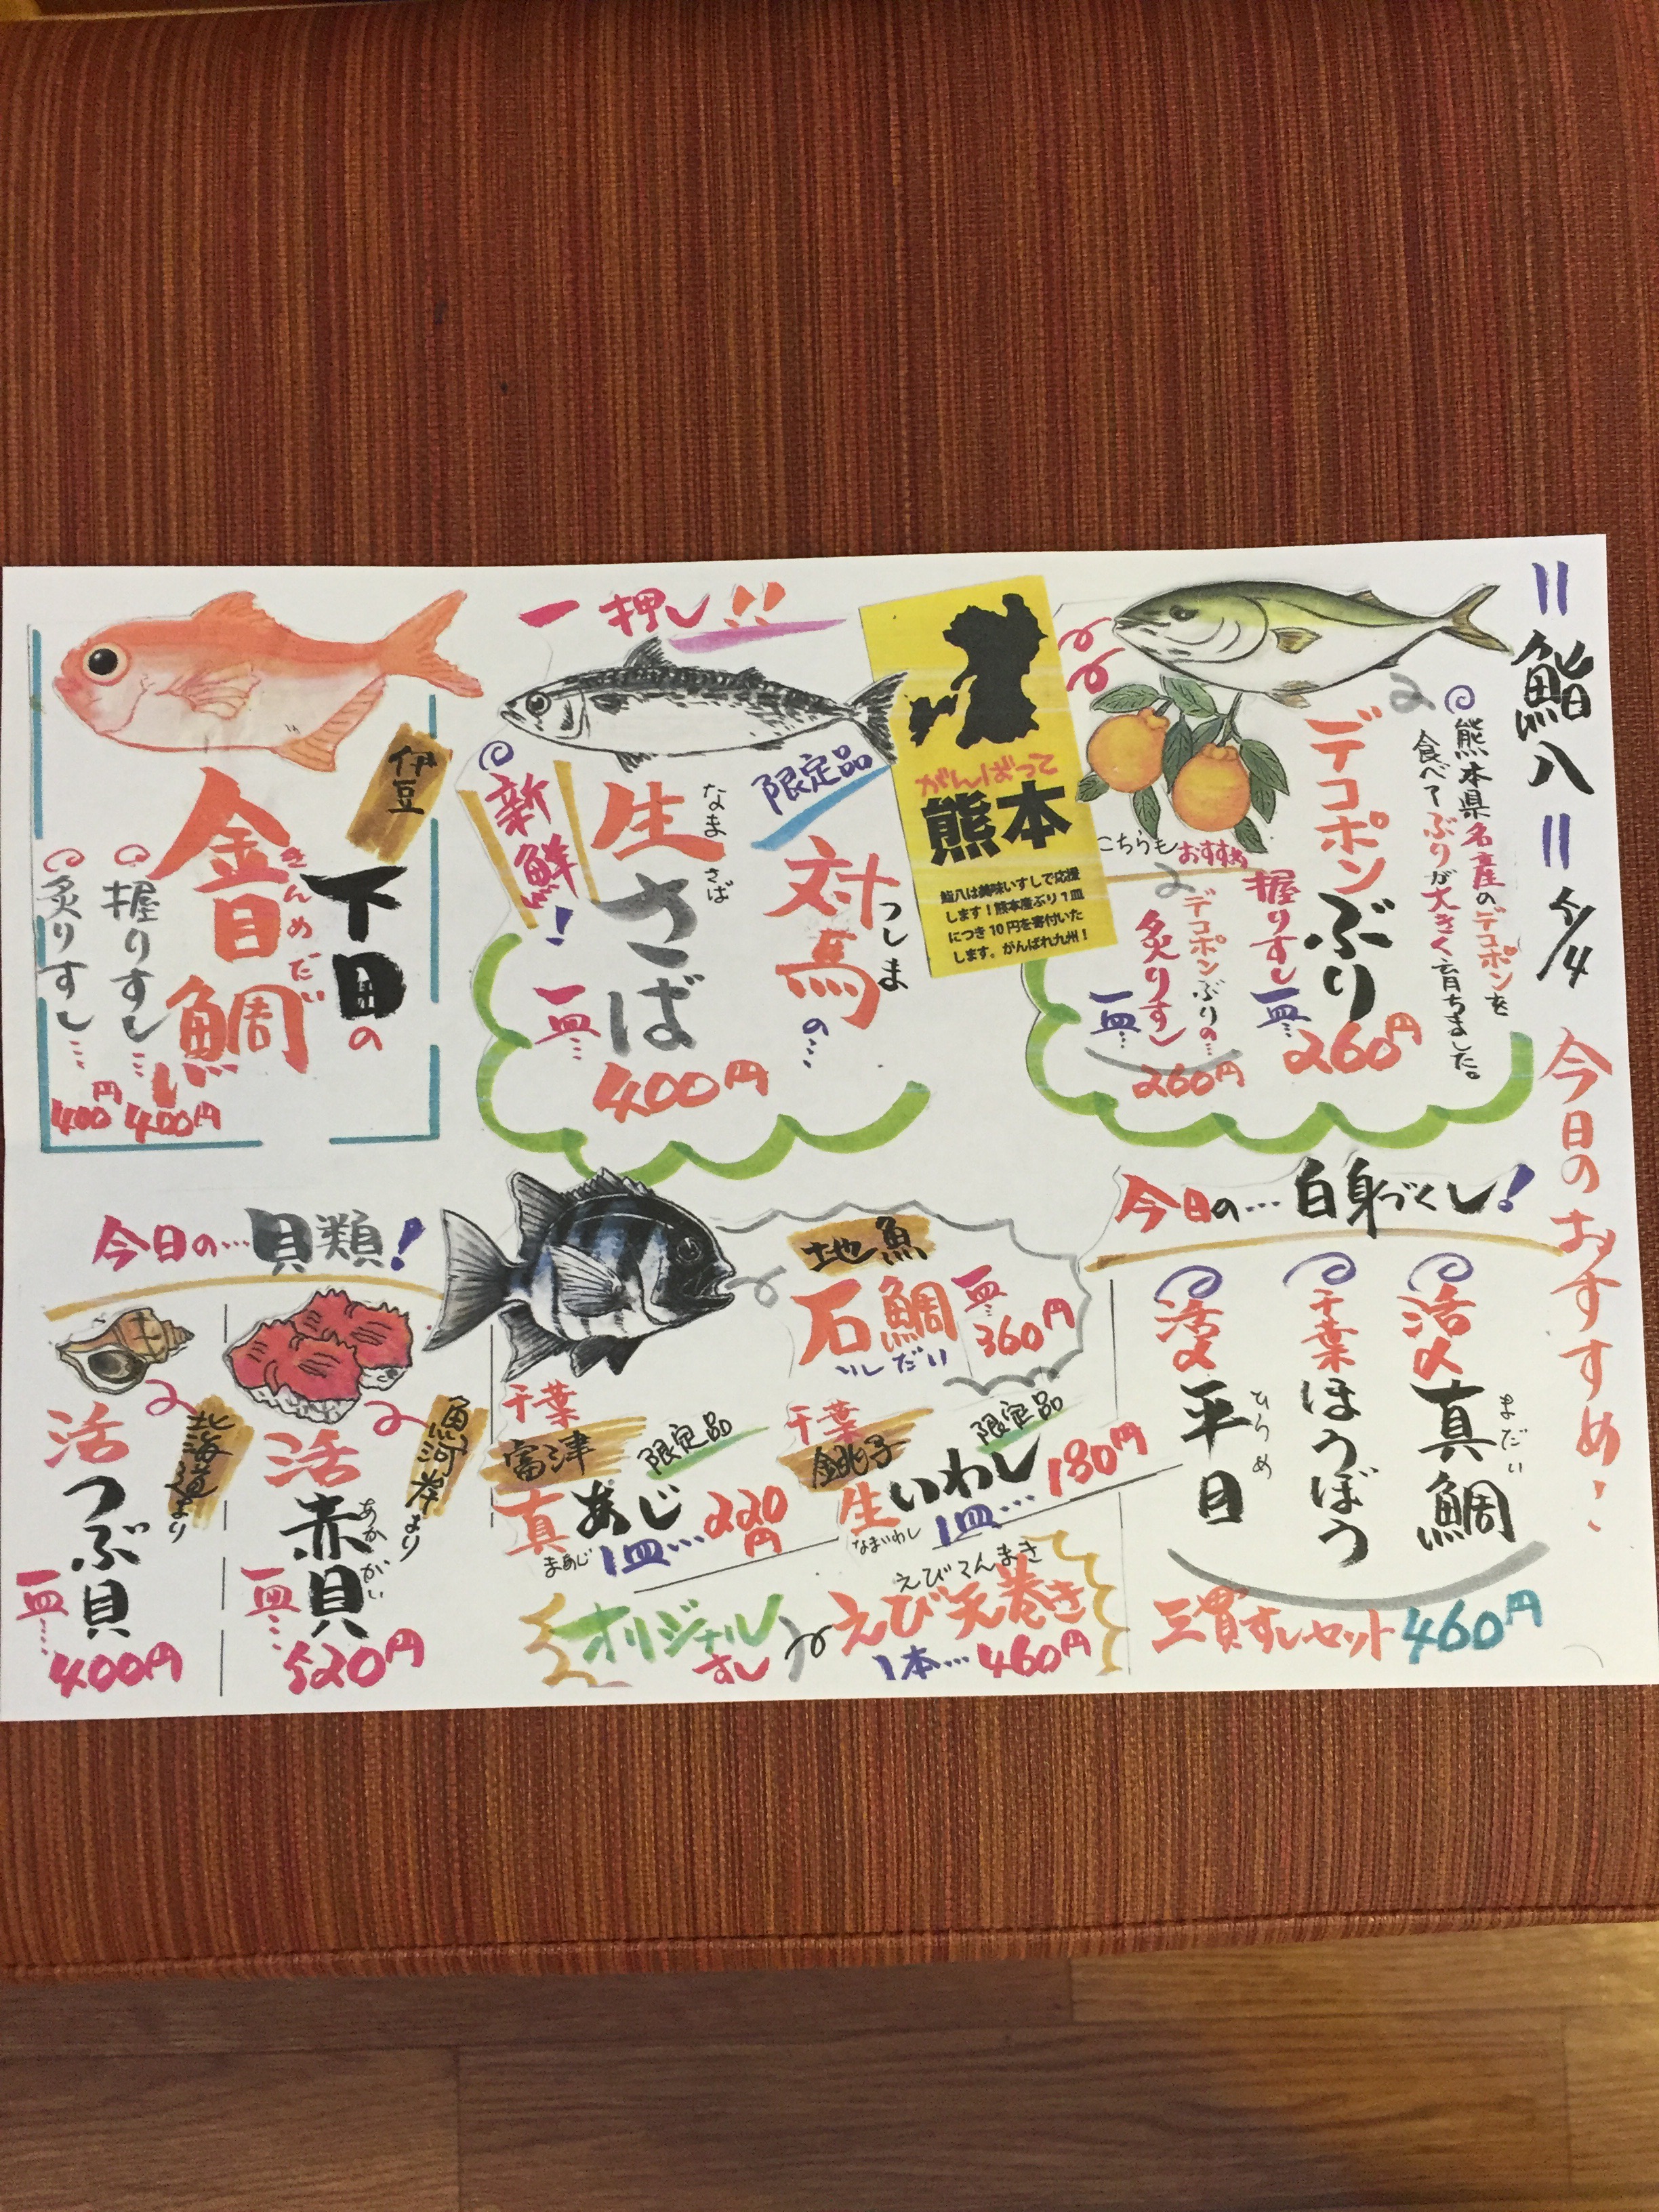 鮨八
5/4
今日のおすすめ!
熊本県名産のデコポンを
食べてぶりが大きく育ちました。
デコポンぶり
握りすし
一皿…
260円
こちらもおすすめ
デコポンぶりの…
炙りすし
一皿…
260円
がんばって
熊本
鮨八は美味いすしで応援
します!熊本産ぶり1皿
につき10円を寄付いた
します。がんばれ九州!
一押し!!
限定品
対馬の…
つしま
生さば
なまさば
新鮮!
一皿…
400円
伊豆
下田の
金目鯛
きんめだい
握りすし…
400円
炙りすし…
400円
今日の…白身づくし!
活〆
真鯛
まだい
千葉
ほうぼう
活〆
平目
ひらめ
三貫すしセット460円
地魚
石鯛
いしだい
一皿…
360円
千葉
銚子
限定品
生いわし
なまいわし
1皿…
180円
千葉
富津
限定品
真あじ
まあじ
1皿…
220円
オリジナル
すし
えびてんまき
えび天巻き
1本…460円
今日の…貝類!
魚河岸より
活赤貝
あかがい
一皿…
520円
北海道より
活つぶ貝
一皿…
400円